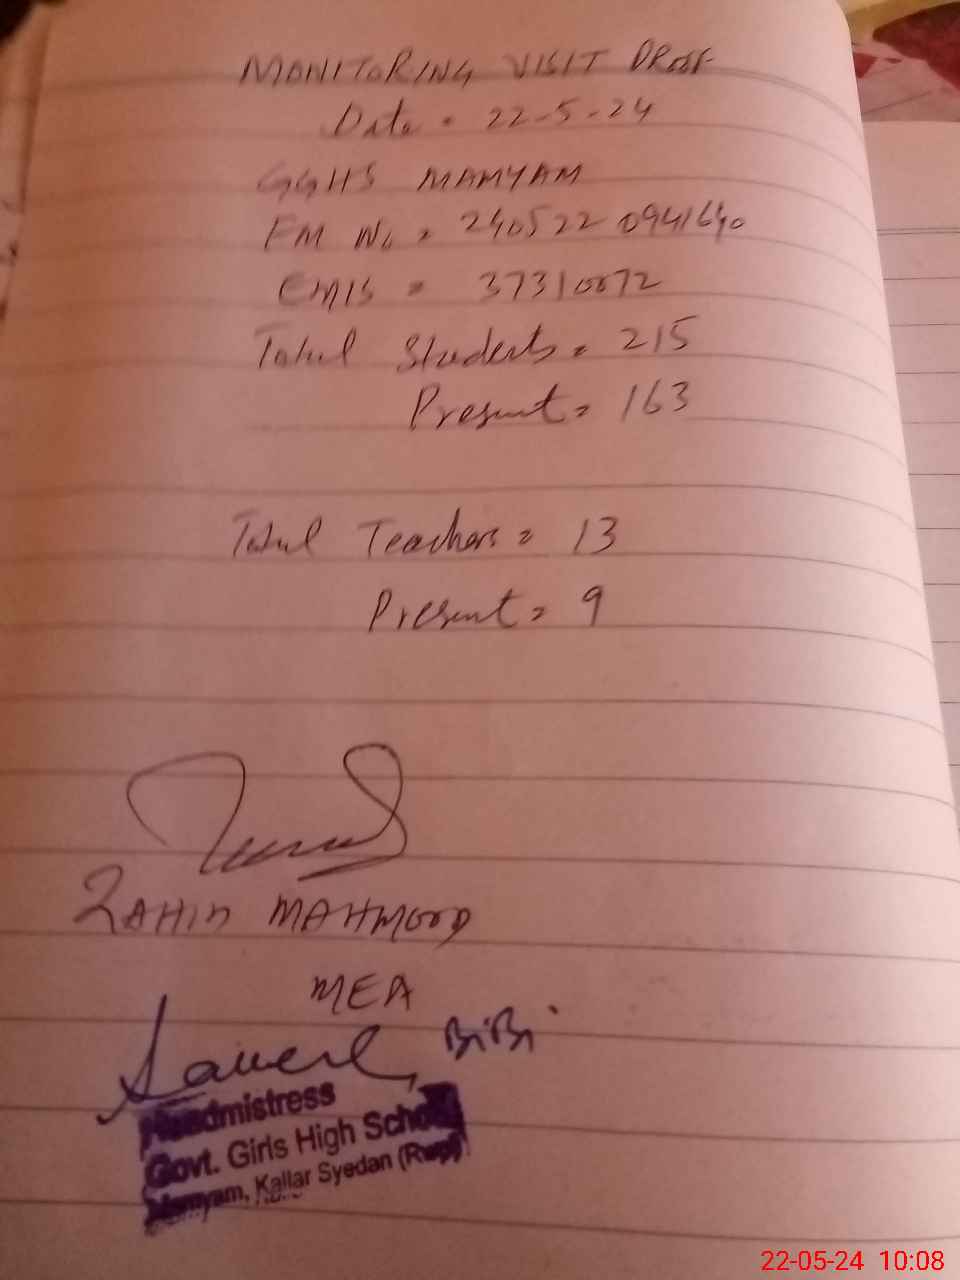 MONITORING VISIT PROOF
Date = 22-5-24
GGHS MAMYAM
FM No = 240522 0941640
EMIS = 37310072
Total Students = 215
Present = 163
Total Teachers = 13
Present = 9
MAHMOOD
MEA
BiBi
Headmistress
Govt. Girls High School
Mamyam, Kallar Syedan (Rwp)
22-05-24 10:08